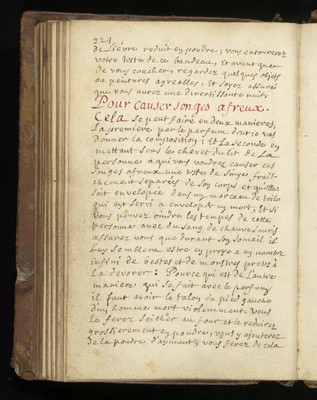 224
de Lievre reduit en poudre; vous entourerez
votre teste de ce bandeau, et avant que
de vous coucher, regardez quelques objets
ou peintures agreables, et soyez assuré
que vous aurez une divertissante nuit.
Pour causer songes afreux.
Cela se peut faire en deux manieres,
La premiere par le parfum dont je vas
donner la composition; et La seconde en
mettant sous le chevet du lit de La
personne a qui vous voudrez causer ces
songes afreux une teste de singe, frais-
chement separée de son corps et qu'elle
soit envelopée dans un morceau de toile
qui ayt servi a enveloper un mort; et si
vous pouvez oindre les tempes de cette
personne avec du sang de chauvesouris
assurez vous que durant son someil il
Luy semblera estre en proye a un nombre
infini de bestes et de monstres prests à
La devorer: Pour ce qui est de L'autre
maniere qui se fait avec le parfum
il faut avoir le talon du pied gauche
d'un homme mort violemment. vous
Le ferez seicher au four et le reduirez
grossierement en poudre, vous y ajouterez
de La poudre d'aymant, vous ferez de cela